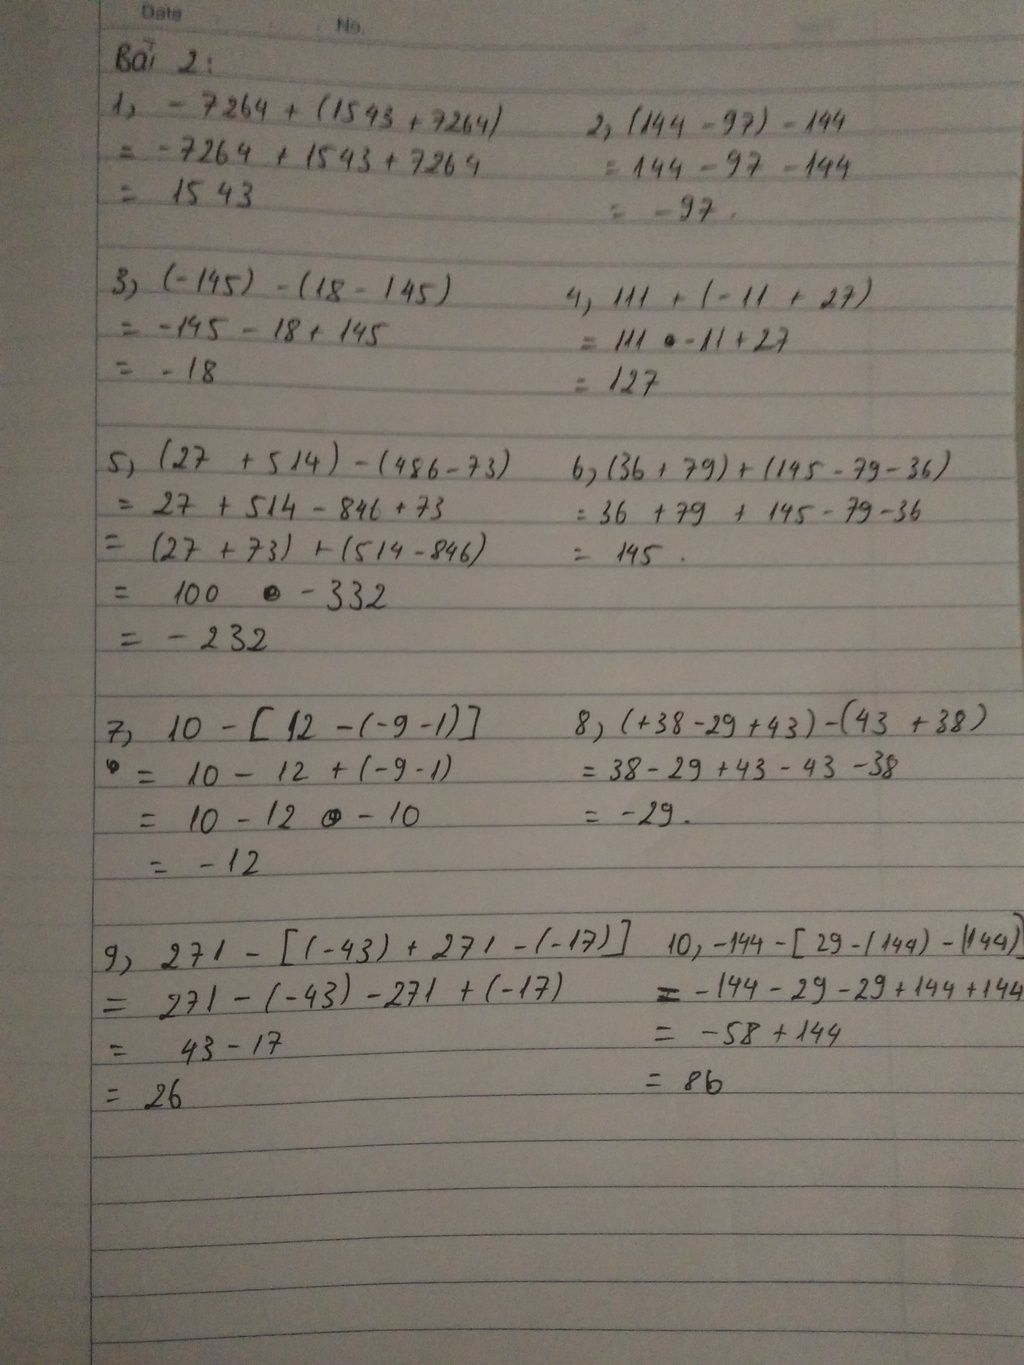 Date
No.
Bài 2:
1, - 7264 + (1543 + 7264)
= -7264 + 1543 + 7264
= 1543
2, (144 - 97) - 144
= 144 - 97 - 144
= -97.
3, (-145) - (18 - 145)
= -145 - 18 + 145
= -18
4, 111 + (-11 + 27)
= 111 -11 + 27
= 127
5, (27 + 514) - (486 - 73)
= 27 + 514 - 846 + 73
= (27 + 73) + (514 - 846)
= 100 - 332
= - 232
6, (36 + 79) + (145 - 79 - 36)
= 36 + 79 + 145 - 79 - 36
= 145.
7, 10 - [12 - (-9 - 1)]
= 10 - 12 + (-9 - 1)
= 10 - 12 - 10
= -12
8, (+38 - 29 + 43) - (43 + 38)
= 38 - 29 + 43 - 43 - 38
= -29.
9, 271 - [(-43) + 271 - (-17)]
= 271 - (-43) - 271 + (-17)
= 43 - 17
= 26
10, -144 - [29 - (144) - (144)]
= -144 - 29 - 29 + 144 + 144
= -58 + 144
= 86